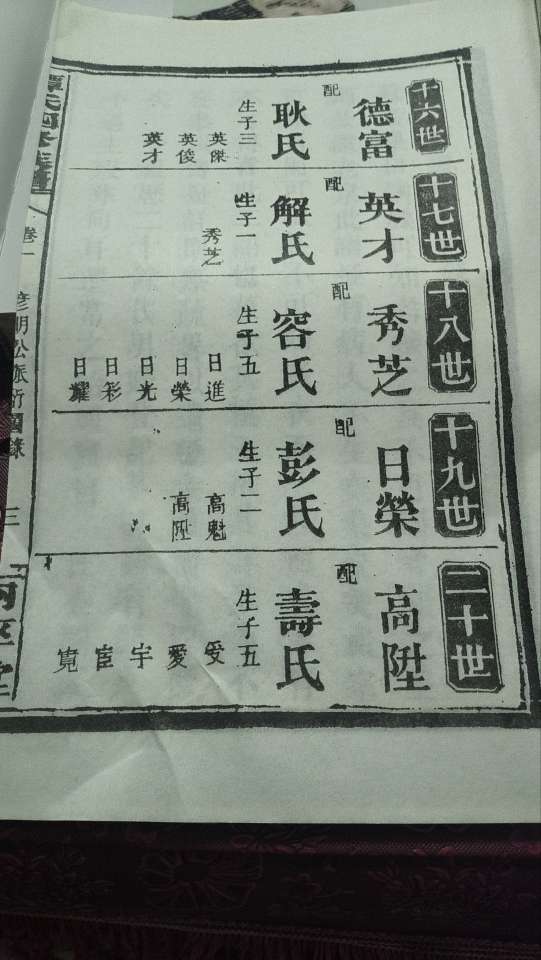 十六世
德富
配
耿氏
生子三
英傑
英俊
英才
十七世
英才
配
解氏
生子一
秀芝
十八世
秀芝
配
容氏
生子五
日進
日榮
日光
日彩
日耀
十九世
日榮
配
彭氏
生子二
高魁
高陞
二十世
高陞
配
壽氏
生子五
愛
宇
宦
寬
卷一
彦明公派衍圖錄
三